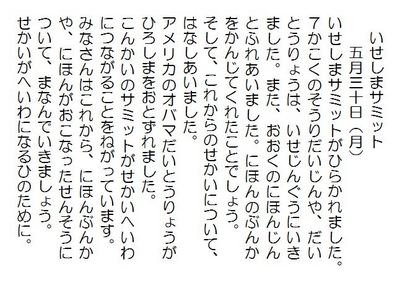 いせしまサミット
五月三十日（月）
いせしまサミットがひらかれました。
７かこくのそうりだいじんや、だい
とうりょうは、いせじんぐうにいき
ました。また、おおくのにほんじん
とふれあいました。にほんのぶんか
をかんじてくれたことでしょう。
そして、これからのせかいについて、
はなしあいました。
アメリカのオバマだいとうりょうが
ひろしまをおとずれました。
こんかいのサミットがせかいへいわ
につながることをねがっています。
みなさんはこれから、にほんぶんか
や、にほんがおこなったせんそうに
ついて、まなんでいきましょう。
せかいがへいわになるひのために。